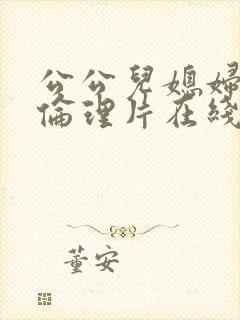 公公兒媳婦
倫理片在綫
董安